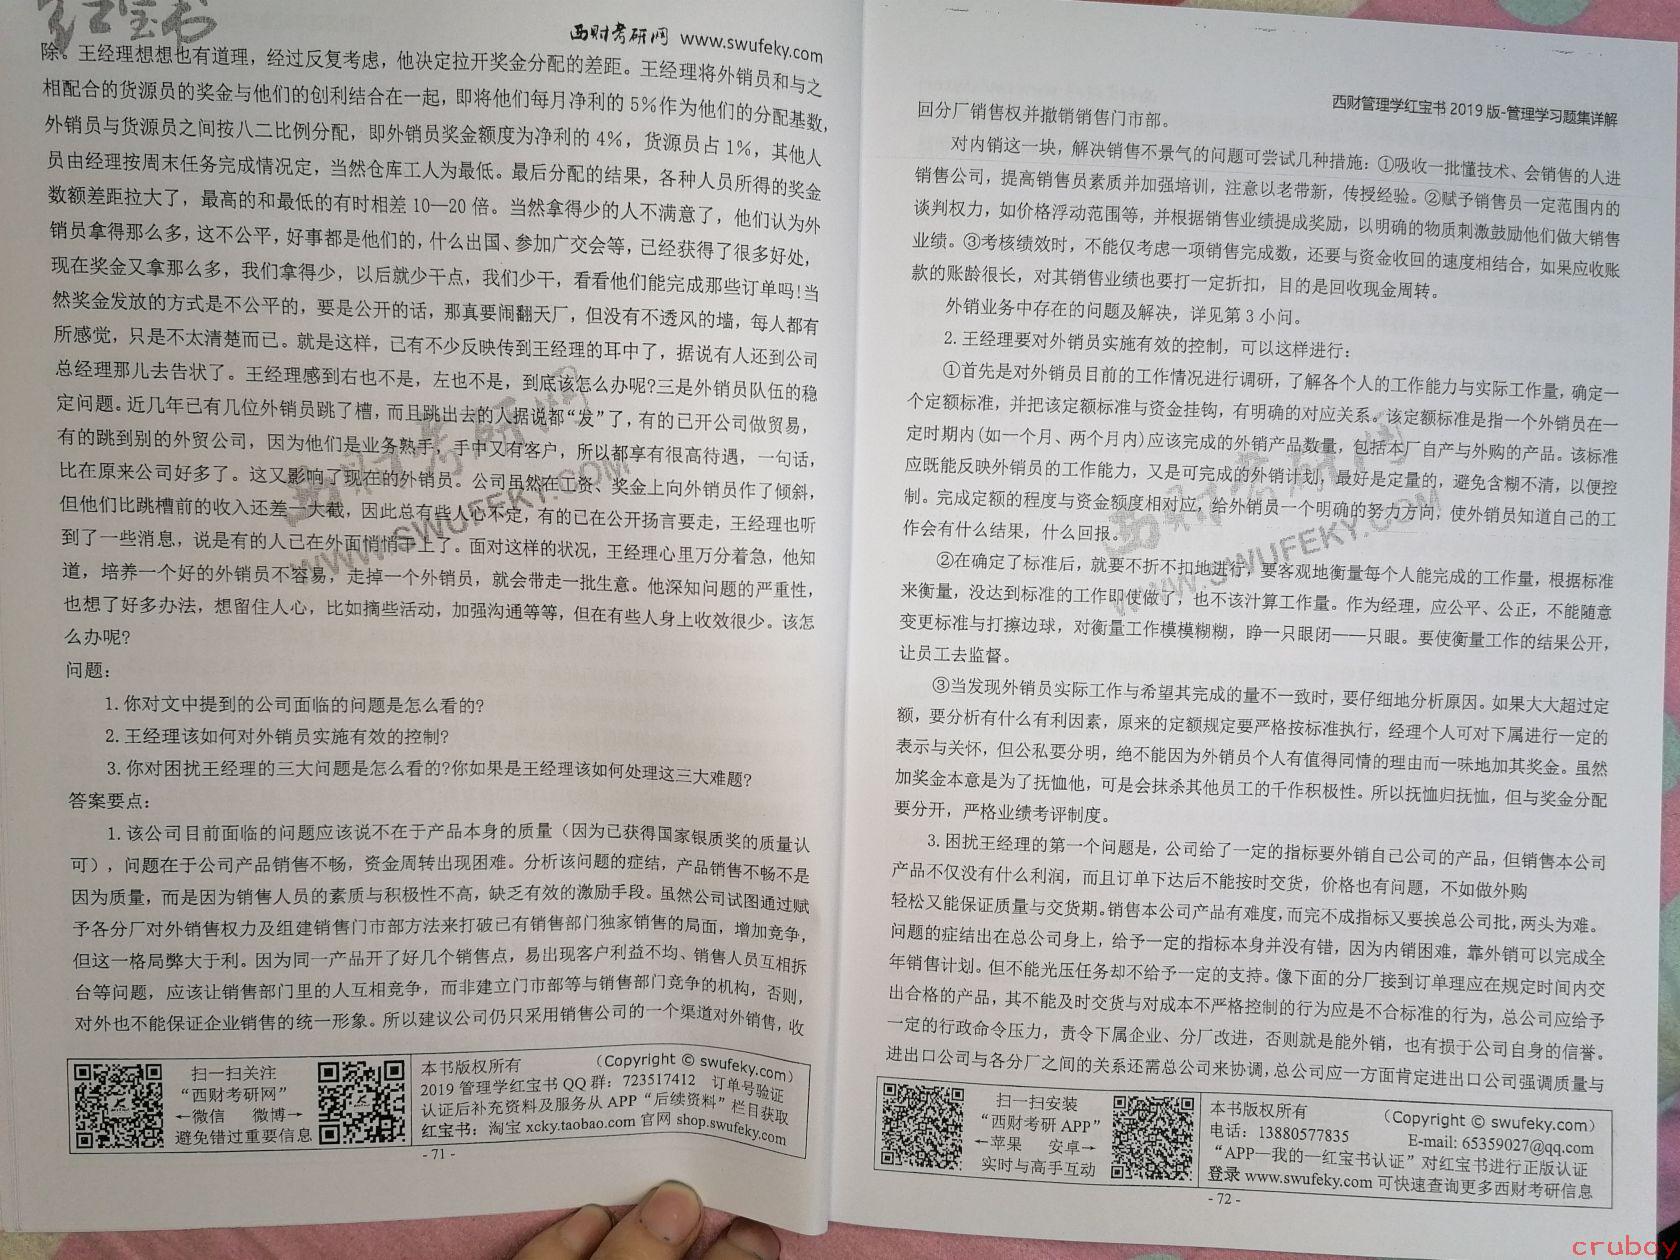 红宝书
西财考研网 www.swufeky.com
除。王经理想想也有道理，经过反复考虑，他决定拉开奖金分配的差距。王经理将外销员和与之
相配合的货源员的奖金与他们的创利结合在一起，即将他们每月净利的5%作为他们的分配基数，
外销员与货源员之间按八二比例分配，即外销员奖金额度为净利的4%，货源员占1%，其他人
员由经理按周末任务完成情况定，当然仓库工人为最低。最后分配的结果，各种人员所得的奖金
数额差距拉大了，最高的和最低的有时相差10—20倍。当然拿得少的人不满意了，他们认为外
销员拿得那么多，这不公平，好事都是他们的，什么出国、参加广交会等，已经获得了很多好处，
现在奖金又拿那么多，我们拿得少，以后就少干点，我们少干，看看他们能完成那些订单吗!当
然奖金发放的方式是不公平的，要是公开的话，那真要闹翻天厂，但没有不透风的墙，每人都有
所感觉，只是不太清楚而已。就是这样，己有不少反映传到王经理的耳中了，据说有人还到公司
总经理那儿去告状了。王经理感到右也不是，左也不是，到底该怎么办呢?三是外销员队伍的稳
定问题。近几年已有几位外销员跳了槽，而且跳出去的人据说都“发”了，有的已开公司做贸易，
有的跳到别的外贸公司，因为他们是业务熟手，手中又有客户，所以都享有很高待遇，一句话，
比在原来公司好多了。这又影响了现在的外销员。公司虽然在工资、奖金上向外销员作了倾斜，
但他们比跳槽前的收入还差一大截，因此总有些人心不定，有的已在公开扬言要走，王经理也听
到了一些消息，说是有的人已在外面悄悄干上了。面对这样的状况，王经理心里万分着急，他知
道，培养一个好的外销员不容易，走掉一个外销员，就会带走一批生意。他深知问题的严重性，
也想了好多办法，想留住人心，比如搞些活动，加强沟通等等，但在有些人身上收效很少。该怎
么办呢?
问题：
1.你对文中提到的公司面临的问题是怎么看的?
2.王经理该如何对外销员实施有效的控制?
3.你对困扰王经理的三大问题是怎么看的?你如果是王经理该如何处理这三大难题?
答案要点：
1.该公司目前面临的问题应该说不在于产品本身的质量（因为已获得国家银质奖的质量认
可），问题在于公司产品销售不畅，资金周转出现困难。分析该问题的症结，产品销售不畅不是
因为质量，而是因为销售人员的素质与积极性不高，缺乏有效的激励手段。虽然公司试图通过赋
予各分厂对外销售权力及组建销售门市部方法来打破已有销售部门独家销售的局面，增加竞争，
但这一格局弊大于利。因为同一产品开了好几个销售点，易出现客户利益不均、销售人员互相拆
台等问题，应该让销售部门里的人互相竞争，而非建立门市部等与销售部门竞争的机构，否则，
对外也不能保证企业销售的统一形象。所以建议公司仍只采用销售公司的一个渠道对外销售，收
扫一扫关注
“西财考研网”
←微信 微博→
避免错过重要信息
本书版权所有 （Copyright © swufeky.com）
2019 管理学红宝书 QQ 群：723517412 订单号验证
认证后补充资料及服务从 APP “后续资料”栏目获取
红宝书：淘宝 xcky.taobao.com 官网 shop.swufeky.com
- 71 -
西财考研网
WWW.SWUFEKY.COM
西财管理学红宝书 2019 版-管理学习题集详解
回分厂销售权并撤销销售门市部。
对内销这一块，解决销售不景气的问题可尝试几种措施：①吸收一批懂技术、会销售的人进
销售公司，提高销售员素质并加强培训，注意以老带新，传授经验。②赋予销售员一定范围内的
谈判权力，如价格浮动范围等，并根据销售业绩提成奖励，以明确的物质刺激鼓励他们做大销售
业绩。③考核绩效时，不能仅考虑一项销售完成数，还要与资金收回的速度相结合，如果应收账
款的账龄很长，对其销售业绩也要打一定折扣，目的是回收现金周转。
外销业务中存在的问题及解决，详见第 3 小问。
2.王经理要对外销员实施有效的控制，可以这样进行：
①首先是对外销员目前的工作情况进行调研，了解各个人的工作能力与实际工作量，确定一
个定额标准，并把该定额标准与资金挂钩，有明确的对应关系。该定额标准是指一个外销员在一
定时期内(如一个月、两个月内)应该完成的外销产品数量，包括本厂自产与外购的产品。该标准
应既能反映外销员的工作能力，又是可完成的外销计划，最好是定量的，避免含糊不清，以便控
制。完成定额的程度与资金额度相对应，给外销员一个明确的努力方向，使外销员知道自己的工
作会有什么结果，什么回报。
②在确定了标准后，就要不折不扣地进行，要客观地衡量每个人能完成的工作量，根据标准
来衡量，没达到标准的工作即使做了，也不该汁算工作量。作为经理，应公平、公正，不能随意
变更标准与打擦边球，对衡量工作模模糊糊，睁一只眼闭——只眼。要使衡量工作的结果公开，
让员工去监督。
③当发现外销员实际工作与希望其完成的量不一致时，要仔细地分析原因。如果大大超过定
额，要分析有什么有利因素，原来的定额规定要严格按标准执行，经理个人可对下属进行一定的
表示与关怀，但公私要分明，绝不能因为外销员个人有值得同情的理由而一味地加其奖金。虽然
加奖金本意是为了抚恤他，可是会抹杀其他员工的千作积极性。所以抚恤归抚恤，但与奖金分配
要分开，严格业绩考评制度。
3.困扰王经理的第一个问题是，公司给了一定的指标要外销自己公司的产品，但销售本公司
产品不仅没有什么利润，而且订单下达后不能按时交货，价格也有问题，不如做外购
轻松又能保证质量与交货期。销售本公司产品有难度，而完不成指标又要挨总公司批，两头为难。
问题的症结出在总公司身上，给予一定的指标本身并没有错，因为内销困难，靠外销可以完成全
年销售计划。但不能光压任务却不给予一定的支持。像下面的分厂接到订单理应在规定时间内交
出合格的产品，其不能及时交货与对成本不严格控制的行为应是不合标准的行为，总公司应给予
一定的行政命令压力，责令下属企业、分厂改进，否则就是能外销，也有损于公司自身的信誉。
进出口公司与各分厂之间的关系还需总公司来协调，总公司应一方面肯定进出口公司强调质量与
扫一扫安装
“西财考研 APP”
←苹果 安卓→
实时与高手互动
本书版权所有 （Copyright © swufeky.com）
电话：13880577835 E-mail: 65359027@qq.com
“APP—我的—红宝书认证”对红宝书进行正版认证
登录 www.swufeky.com 可快速查询更多西财考研信息
- 72 -
西财考研网
WWW.SWUFEKY.COM
cruboy